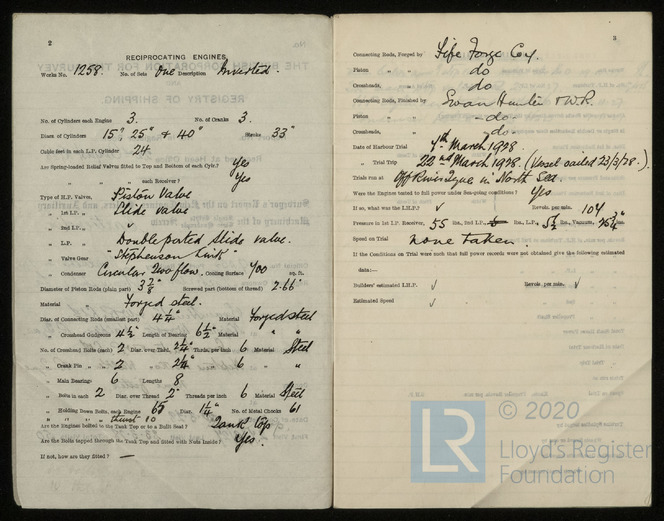 2
RECIPROCATING ENGINES.
Works No. 1258. No. of Sets One Description Inverted.
No. of Cylinders each Engine 3. No. of Cranks 3.
Diars. of Cylinders 15", 25" & 40" Stroke 33"
Cubic feet in each L.P. Cylinder 24.
Are Spring-loaded Relief Valves fitted to Top and Bottom of each Cylr.? Yes
" " " each Receiver? Yes
Type of H.P. Valves, Piston Valve
" 1st I.P. " Slide valve
" 2nd I.P. " "
" L.P. " Double ported slide valve.
" Valve Gear "Stephenson Link"
" Condenser Circular Two flow. Cooling Surface 700 sq. ft.
Diameter of Piston Rods (plain part) 3 7/8" Screwed part (bottom of thread) 2.66"
Material Forged steel.
Diar. of Connecting Rods (smallest part) 4 1/4" Material Forged steel
" Crosshead Gudgeons 4 1/2" Length of Bearing 6 1/2" Material " "
No. of Crosshead Bolts (each) 2 Diar. over Thrd. 2 1/4" Thrds. per inch 6 Material Steel
" Crank Pin " " 2 " 2 1/4" " 6 " "
" Main Bearings 6 Lengths 8
" Bolts in each 2 Diar. over Thread 2" Threads per inch 6 Material Steel
" Holding Down Bolts, each Engine 65 Diar. 1 1/4" No. of Metal Chocks 61
" " thrust 10
Are the Engines bolted to the Tank Top or to a Built Seat? Tank top
Are the Bolts tapped through the Tank Top and fitted with Nuts Inside? Yes.
If not, how are they fitted? —
3
Connecting Rods, Forged by Fife Forge Coy.
Piston " do
Crossheads, " do
Connecting Rods, Finished by Swan Hunter & W.R.
Piston " - do -
Crossheads, " do
Date of Harbour Trial 7th March 1928
" Trial Trip 22nd March 1928. (Vessel sailed 23/3/28.)
Trials run at Off River Tyne in North Sea.
Were the Engines tested to full power under Sea-going conditions? Yes
If so, what was the I.H.P.? ✓ Revols. per min. 104
Pressure in 1st I.P. Receiver, 55 lbs., 2nd I.P., lbs., L.P., 5 1/2 lbs., Vacuum, 25 3/4" ins.
Speed on Trial None taken.
If the Conditions on Trial were such that full power records were not obtained give the following estimated
data:—
Builders' estimated I.H.P. ✓ Revols. per min. ✓
Estimated Speed ✓
© 2020
LR
Lloyd's Register
Foundation